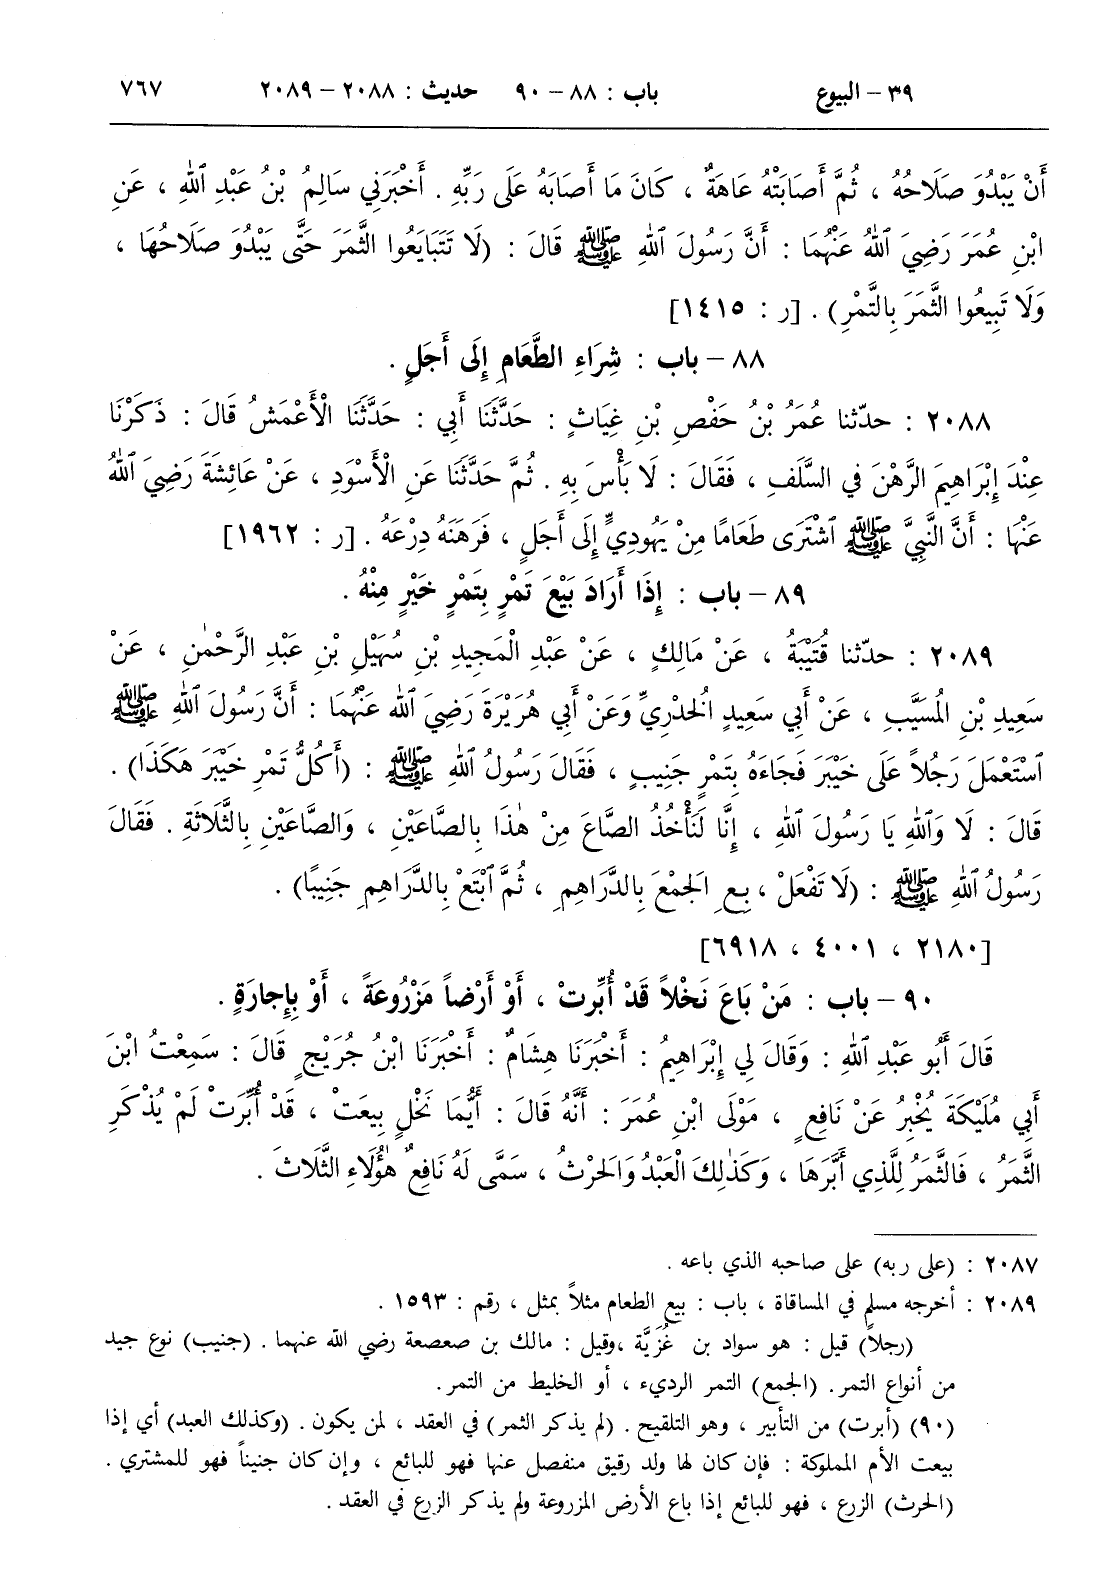 ٣٩ – البيوع باب : ٨٨ – ٩٠ حديث : ٢٠٨٨ – ٢٠٨٩ ٧٦٧
أَنْ يَبْدُوَ صَلَاحُهُ ، ثُمَّ أَصَابَتْهُ عَاهَةٌ ، كَانَ مَا أَصَابَهُ عَلَى رَبِّهِ . أَخْبَرَنِي سَالِمُ بْنُ عَبْدِ اللهِ ، عَنِ
ابْنِ عُمَرَ رَضِيَ اللهُ عَنْهُمَا : أَنَّ رَسُولَ اللهِ ﷺ قَالَ : (لَا تَتَبَايَعُوا الثَّمَرَ حَتَّى يَبْدُوَ صَلَاحُهَا ،
وَلَا تَبِيعُوا الثَّمَرَ بِالتَّمْرِ) . [ر : ١٤١٥]
٨٨ – باب : شِرَاءِ الطَّعَامِ إِلَى أَجَلٍ .
٢٠٨٨ : حدّثنا عُمَرُ بْنُ حَفْصِ بْنِ غِيَاثٍ : حَدَّثَنَا أَبِي : حَدَّثَنَا الْأَعْمَشُ قَالَ : ذَكَرْنَا
عِنْدَ إِبْرَاهِيمَ الرَّهْنَ فِي السَّلَفِ ، فَقَالَ : لَا بَأْسَ بِهِ . ثُمَّ حَدَّثَنَا عَنِ الْأَسْوَدِ ، عَنْ عَائِشَةَ رَضِيَ اللهُ
عَنْهَا : أَنَّ النَّبِيَّ ﷺ اشْتَرَى طَعَامًا مِنْ يَهُودِيٍّ إِلَى أَجَلٍ ، فَرَهَنَهُ دِرْعَهُ . [ر : ١٩٦٢]
٨٩ – باب : إِذَا أَرَادَ بَيْعَ تَمْرٍ بِتَمْرٍ خَيْرٍ مِنْهُ .
٢٠٨٩ : حدّثنا قُتَيْبَةُ ، عَنْ مَالِكٍ ، عَنْ عَبْدِ الْمَجِيدِ بْنِ سُهَيْلِ بْنِ عَبْدِ الرَّحْمٰنِ ، عَنْ
سَعِيدِ بْنِ المُسَيَّبِ ، عَنْ أَبِي سَعِيدٍ الخُدْرِيِّ وَعَنْ أَبِي هُرَيْرَةَ رَضِيَ اللهُ عَنْهُمَا : أَنَّ رَسُولَ اللهِ ﷺ
اسْتَعْمَلَ رَجُلاً عَلَى خَيْبَرَ فَجَاءَهُ بِتَمْرٍ جَنِيبٍ ، فَقَالَ رَسُولُ اللهِ ﷺ : (أَكُلُّ تَمْرِ خَيْبَرَ هَكَذَا) .
قَالَ : لَا وَاللهِ يَا رَسُولَ اللهِ ، إِنَّا لَنَأْخُذُ الصَّاعَ مِنْ هٰذَا بِالصَّاعَيْنِ ، وَالصَّاعَيْنِ بِالثَّلَاثَةِ . فَقَالَ
رَسُولُ اللهِ ﷺ : (لَا تَفْعَلْ ، بِعِ الجَمْعَ بِالدَّرَاهِمِ ، ثُمَّ ابْتَعْ بِالدَّرَاهِمِ جَنِيبًا) .
[٢١٨٠ ، ٤٠٠١ ، ٦٩١٨]
٩٠ – باب : مَنْ بَاعَ نَخْلاً قَدْ أُبِّرَتْ ، أَوْ أَرْضاً مَزْرُوعَةً ، أَوْ بِإِجارَةٍ .
قَالَ أَبُو عَبْدِ اللهِ : وَقَالَ لِي إِبْرَاهِيمُ : أَخْبَرَنَا هِشَامٌ : أَخْبَرَنَا ابْنُ جُرَيْجٍ قَالَ : سَمِعْتُ ابْنَ
أَبِي مُلَيْكَةَ يُخْبِرُ عَنْ نَافِعٍ ، مَوْلَى ابْنِ عُمَرَ : أَنَّهُ قَالَ : أَيُّمَا نَخْلٍ بِيعَتْ ، قَدْ أُبِّرَتْ لَمْ يُذْكَرِ
الثَّمَرُ ، فَالثَّمَرُ لِلَّذِي أَبَّرَهَا ، وَكَذٰلِكَ الْعَبْدُ وَالحَرْثُ ، سَمَّى لَهُ نَافِعٌ هٰؤُلَاءِ الثَّلَاثَ .
٢٠٨٧ : (على ربه) على صاحبه الذي باعه .
٢٠٨٩ : أخرجه مسلم في المساقاة ، باب : بيع الطعام مثلاً بمثل ، رقم : ١٥٩٣ .
(رجلاً) قيل : هو سواد بن غُزَيَّة ،وقيل : مالك بن صعصعة رضي الله عنهما . (جنيب) نوع جيد
من أنواع التمر. (الجمع) التمر الرديء ، أو الخليط من التمر.
(٩٠) (أبرت) من التأبير ، وهو التلقيح . (لم يذكر الثمر) في العقد ، لمن يكون . (وكذلك العبد) أي إذا
بيعت الأم المملوكة : فإن كان لها ولد رقيق منفصل عنها فهو للبائع ، وإن كان جنيناً فهو للمشتري .
(الحرث) الزرع ، فهو للبائع إذا باع الأرض المزروعة ولم يذكر الزرع في العقد .